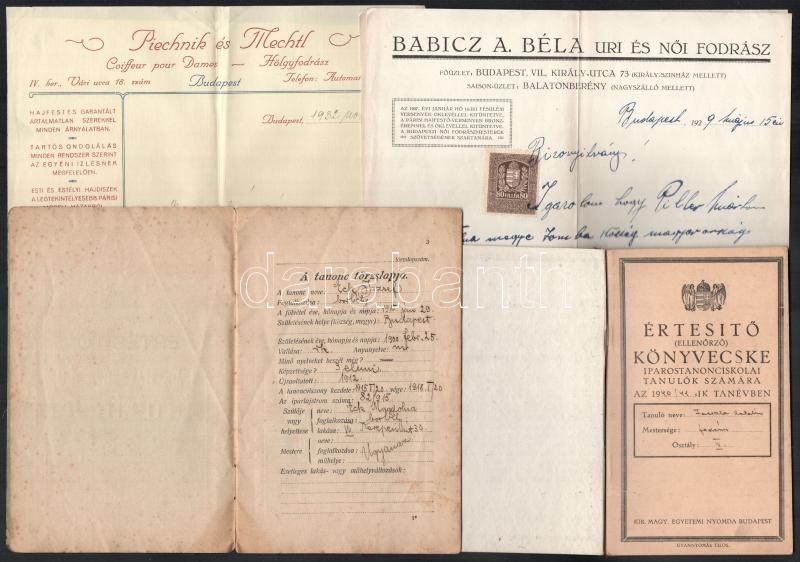 Piechnik és Mechtl
Coiffeur pour Dames — Hölgyfodrász
IV. ker., Váci ucca 18. szám Budapest Telefon: Automata
Budapest, 1932
HAJFESTÉS GARANTÁLT
ÁRTALMATLAN SZEREKKEL
MINDEN ÁRNYALATBAN.
TARTÓS ONDOLÁLÁS
MINDEN RENDSZER SZERINT
AZ EGYÉNI IZLÉSNEK
MEGFELELŐEN.
ESTI ÉS ESTÉLYI HAJDISZEK
A LEGTEKINTÉLYESEBB PÁRISI
BABICZ A. BÉLA URI ÉS NŐI FODRÁSZ
FŐÜZLET: BUDAPEST, VII. KIRÁLY-UTCA 73 (KIRÁLY-SZINHÁZ MELLETT)
SAISON-ÜZLET: BALATONBERÉNY (NAGYSZÁLLÓ MELLETT)
AZ 1927. ÉVI JANUÁR HÓ 16-IKI TESTÜLETI
VERSENYEN OKLEVÉLLEL KITÜNTETVE,
A PÁRISI HAJFESTŐ-VERSENYEN BRONZ-
ÉREMMEL ÉS OKLEVÉLLEL KITÜNTETVE.
A BUDAPESTI NŐI FODRÁSZMESTEREK
SZÖVETSÉGÉNEK SZAKTANÁRA.
Budapest, 1929 május 15 én
80 FILLÉR 80
Bizonyitvány!
Igazolom hogy Piller
megye község magyarország
3
törzslapszám.
A tanonc törzslapja.
A tanonc neve: Eck József
Foglalkozása: borbély
A fölvétel éve, hónapja és napja: 20.
Születésének helye (község, megye): Budapest
Születésének éve, hónapja és napja: 1900 febr. 25.
Vallása: rk Anyanyelve: m
Minő nyelveket beszél még?
Képzettsége? 3 elemi
Újraoltatott: 1912
A tanoncviszony kezdete: 1915 I/20 vége: 1918 I/20.
Az iparlajstrom száma: 82/915
Szülője neve: Eck
vagy foglalkozása: borbély
helyettese lakása: 30
neve:
Mestere foglalkozása: Ugyanaz
műhelye:
Esetleges lakás- vagy műhelyváltozások:
ÉRTESITŐ
(ELLENŐRZŐ)
KÖNYVECSKE
IPAROSTANONCISKOLAI
TANULÓK SZÁMÁRA
AZ 1940/41 -IK TANÉVBEN
Tanuló neve:
Mestersége:
Osztály:
KIR. MAGY. EGYETEMI NYOMDA BUDAPEST
UTÁNNYOMÁS TILOS.
darabanth